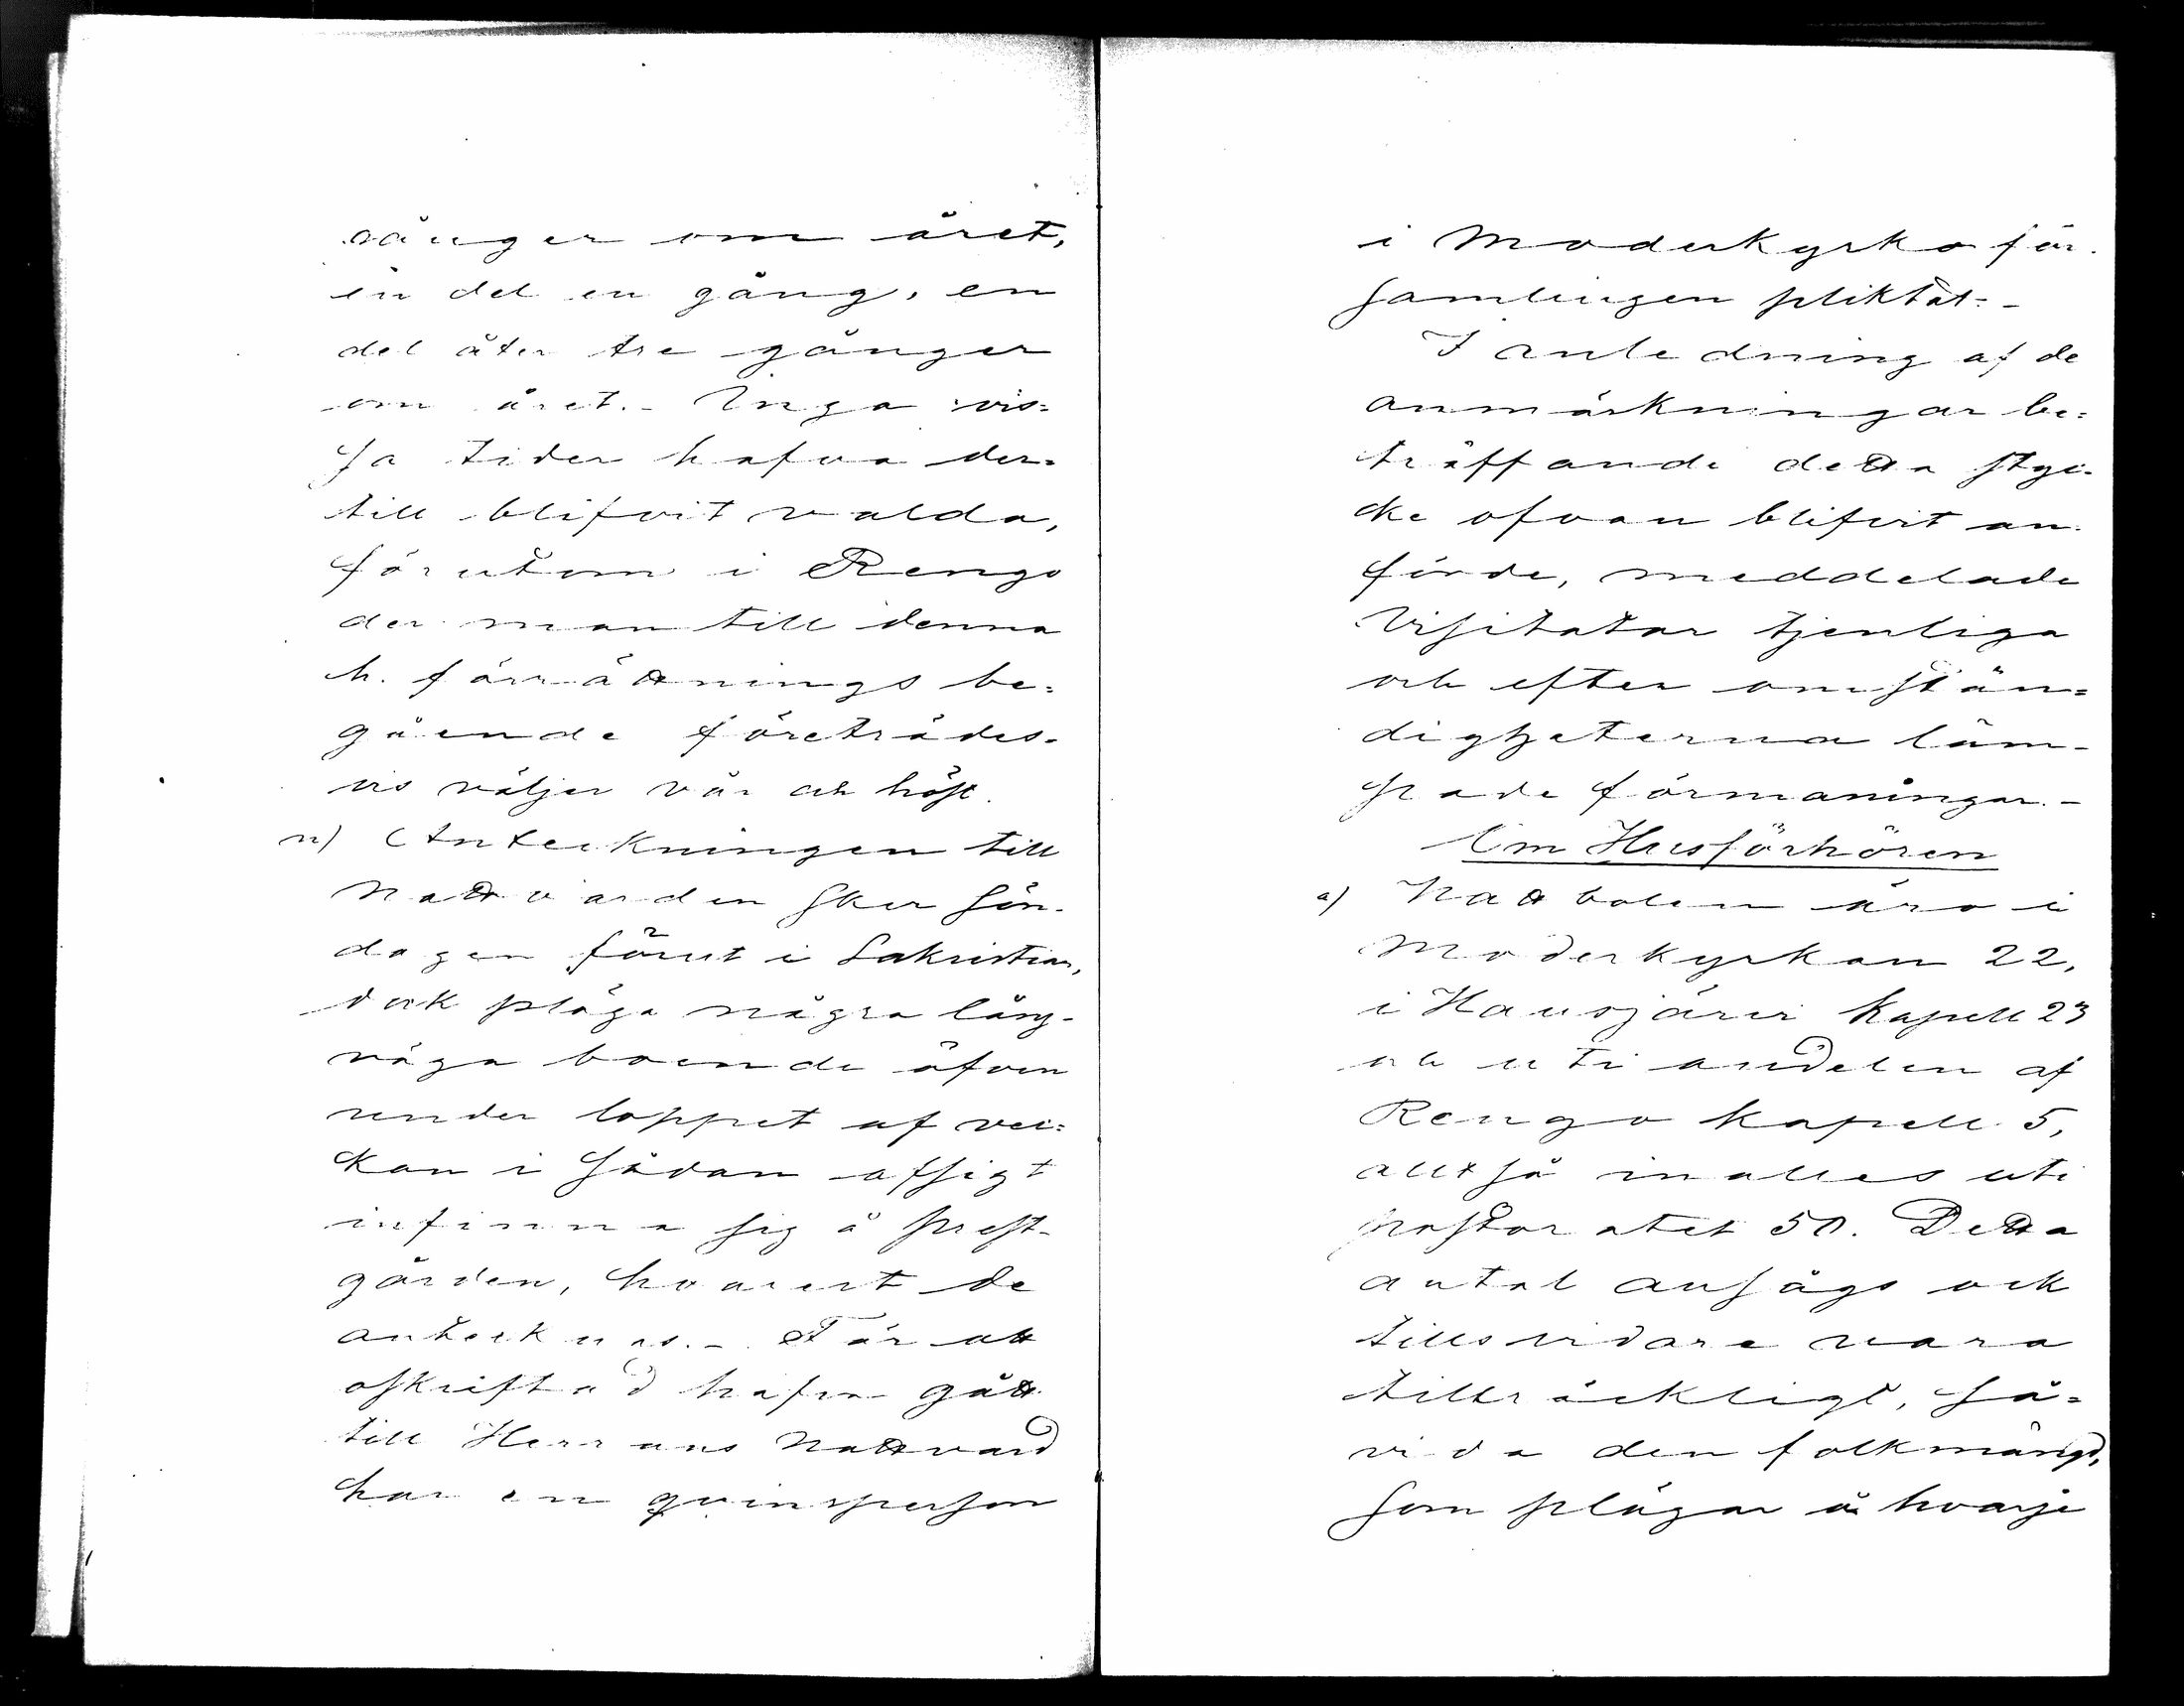 gånger om året,
en del en gång, en
del åter tre gånger
om året. - Inga vis=
sa tider hafva der=
till blifvit valda,
förutom i Rengo
der man till denna
h. förrättnings be=
gående företrädes-
vis väljer vår och höst.
n) Anteckningen till
Nattvarden sker Sön-
dagen förut i Sakristian,
dock pläga några lång-
väga boende äfven
under loppet af vec=
kan i sådan afsigt
infinna sig å prest-
gården, hvarest de
antecknas. - För att
oskriftad hafva gått
till Herrans Nattvard
har en qvinsperson
i Moderkyrko för-
samlingen pliktat. -
I anledning af de
anmärkningar be=
träffande detta styc-
ke ofvan blifvit an-
förde, meddelade
Visitator tjenliga
och efter omstän=
digheterna läm-
pade förmaningar. -
Om Husförhören
a) Nattbolen äro i
Moderkyrkan 22,
i Hausjärvi Kapell 23
och uti andelen af
Rengo Kapell 5,
alltså inalles uti
pastoratet 50. Detta
antal ansågs ock
tillsvidare vara
tillräckligt, så=
vida den folkmängd,
som plägar å hvarje